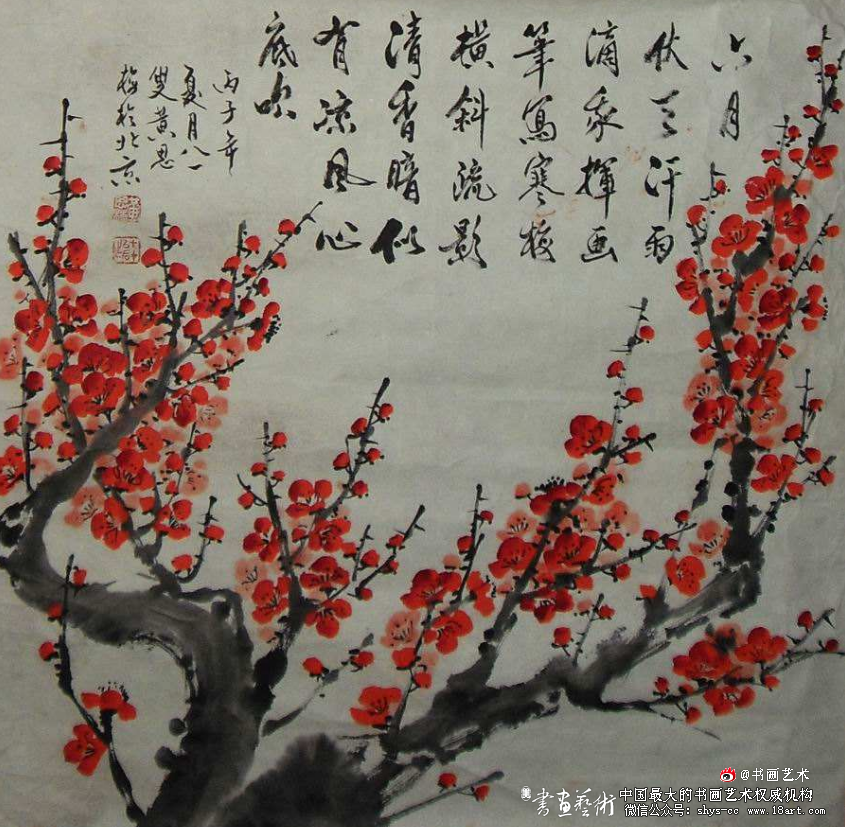 六月
伏天汗雨
滴我揮画
筆寫寒梅
橫斜疏影
清香暗似
有涼風心
底吹
丙子年
夏月八一
叟黄思
梅於北京
@书画艺术
書畫藝術
中国最大的书画艺术权威机构
微信公众号: shys-cc www.18art.com